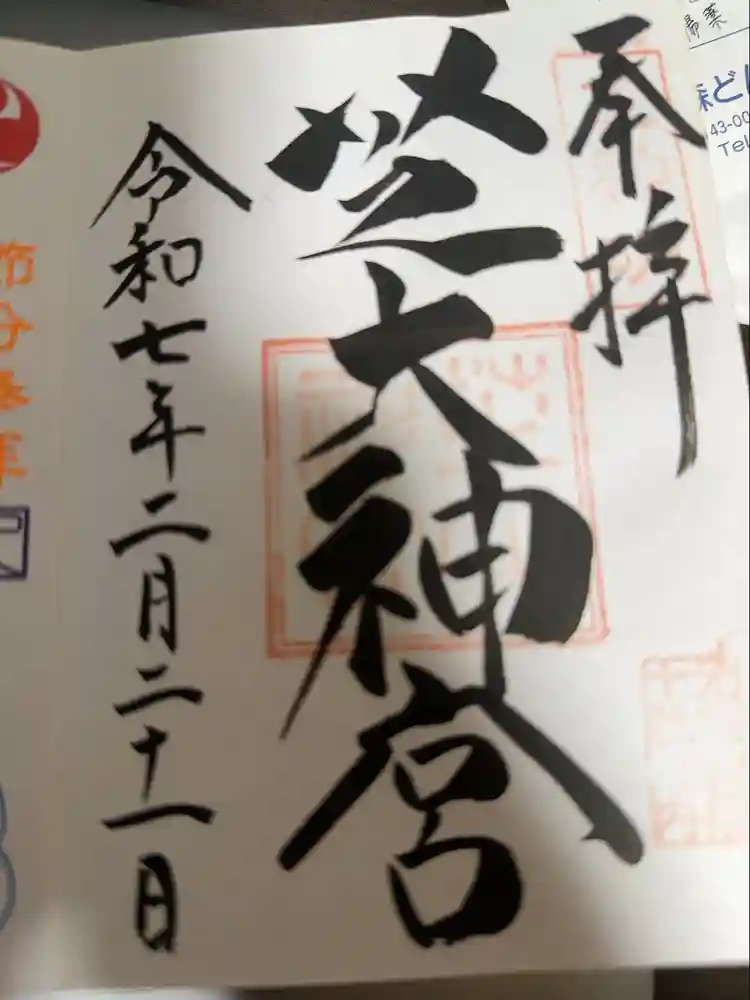 奉拝
芝大神宮
令和七年二月二十一日
節分
帰薬
どり
43-00
Tel